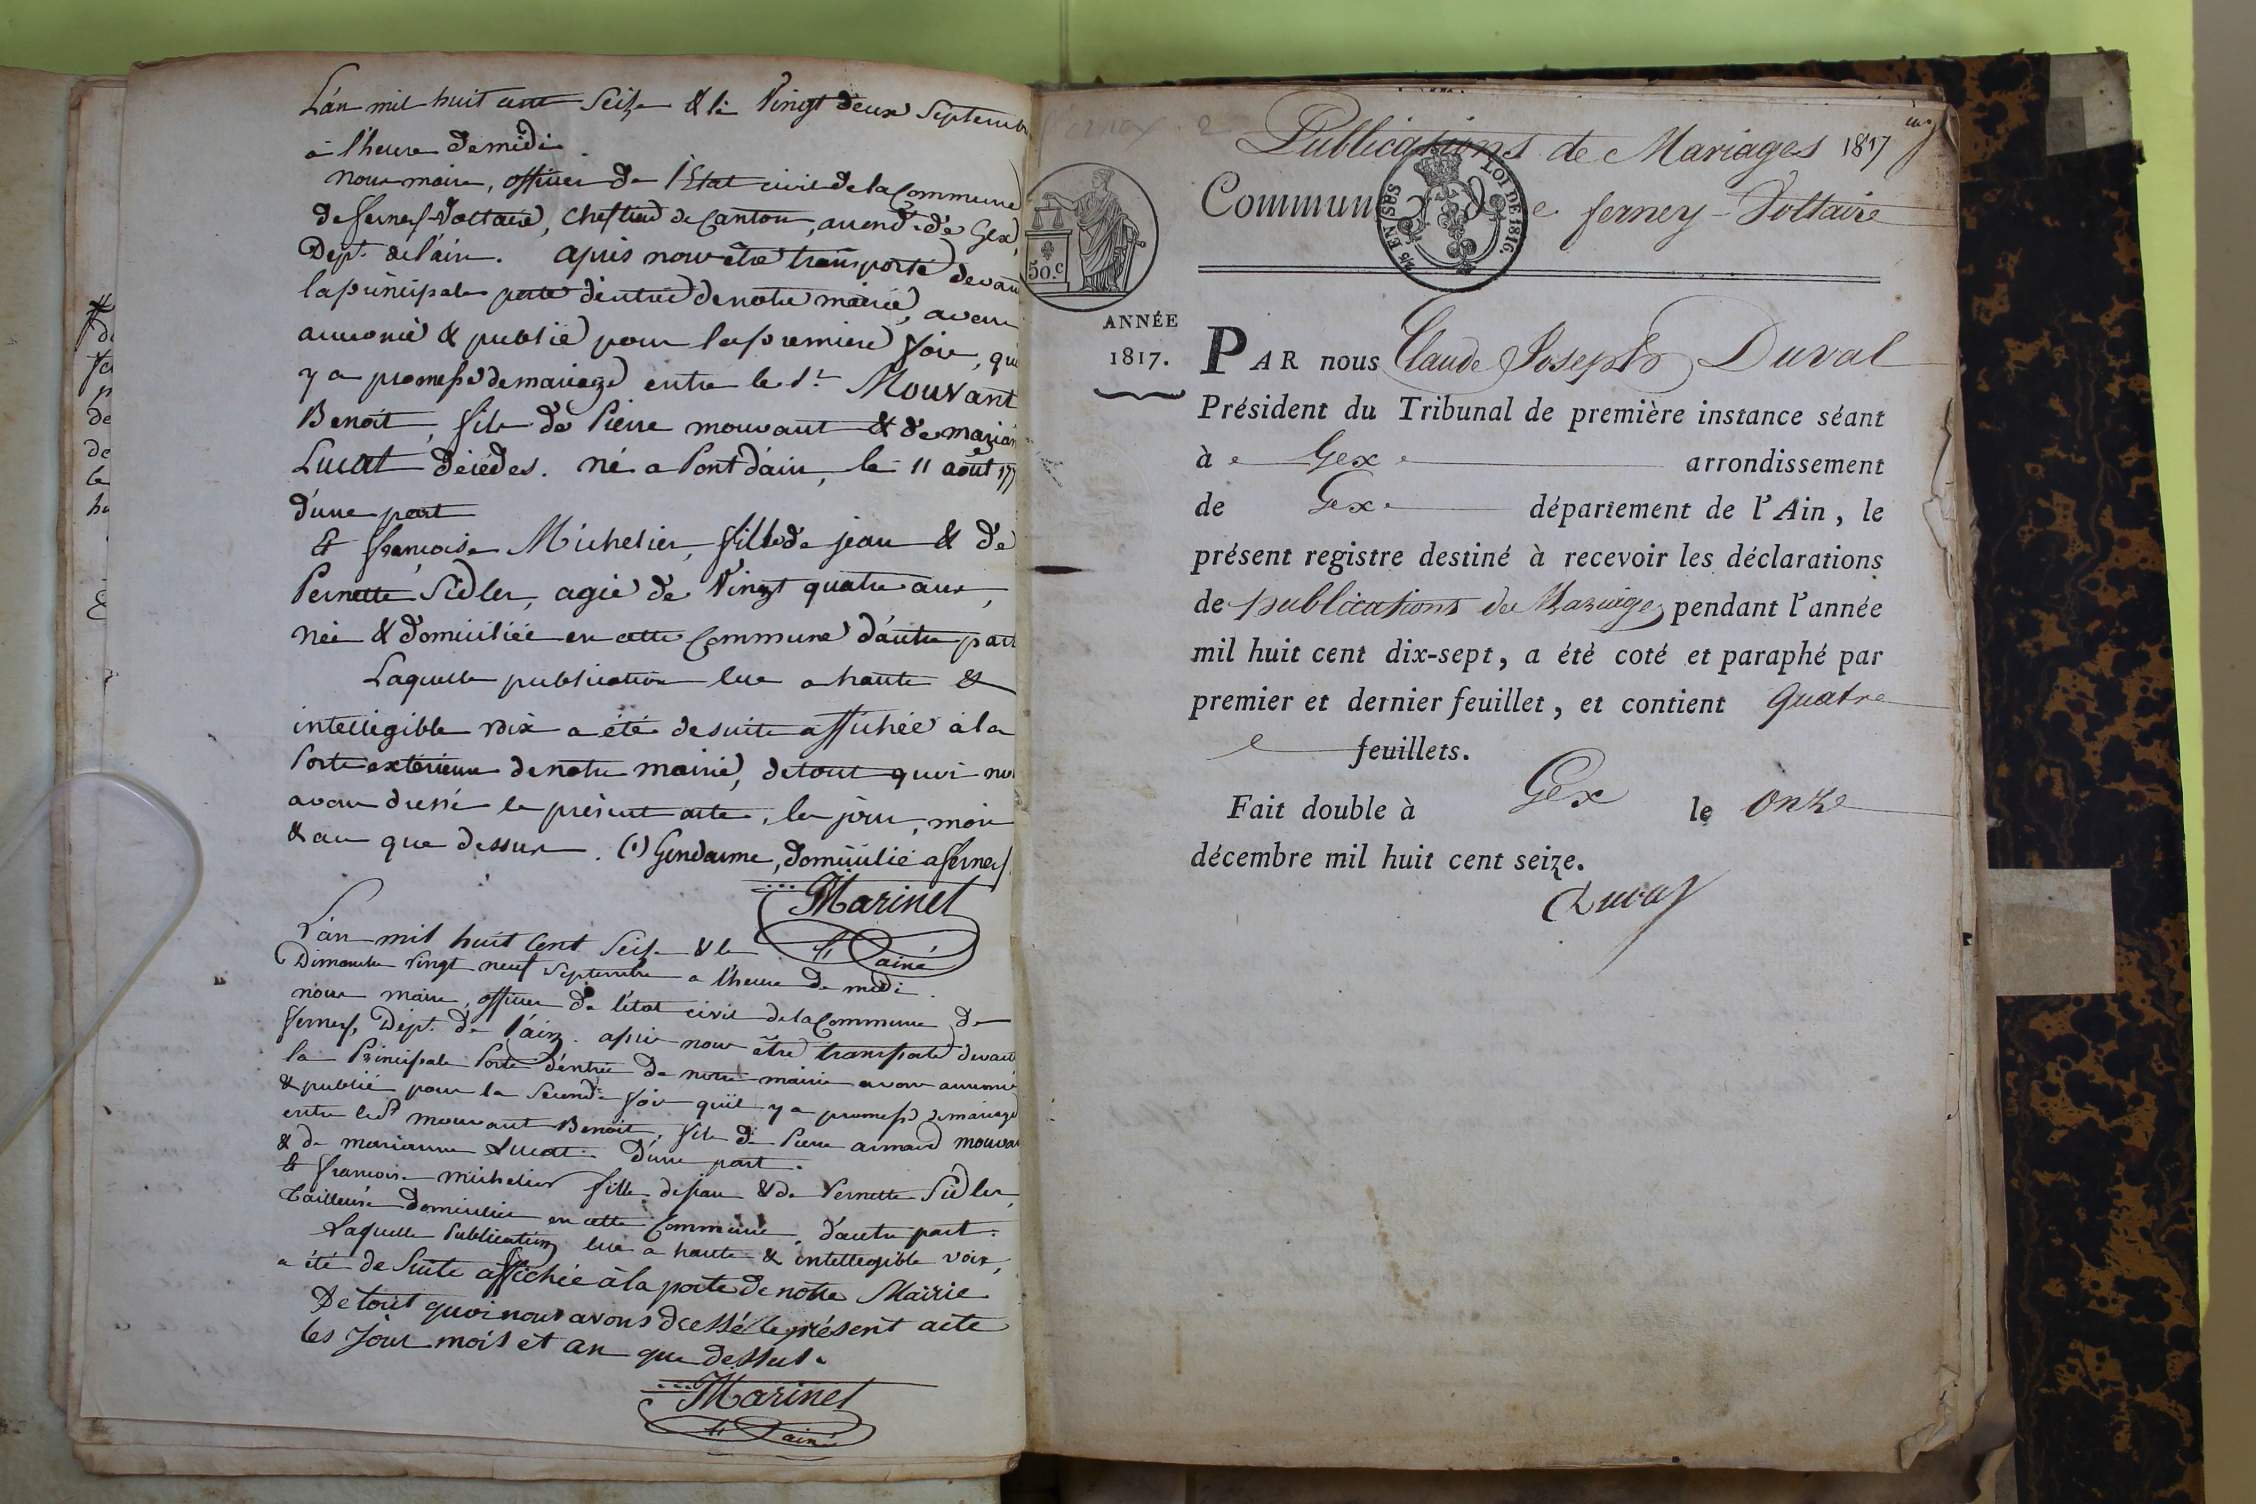 L'an mil huit cent Seize & le Vingt deux Septemb
à l'heure de midi.
nous maire, officier de l'Etat civil de la Commune
de fernex-Voltaire, chef lieu de Canton, arrondt. de Gex,
Dept. de l'ain. après nous être transporté devant
la principale porte d'entrée de notre mairie, avons
annoncé & publié pour la premiere fois, qu'il
y a promesse de mariage entre le Sr. Mouvant
Benoit, fils de Pierre mouvant & de marian
Lucat décédés. né a Pont d'ain, le 11 août 177
d'une part
Et françoise Michelier, fille de jean & de
Pernette Sidler, agée de Vingt quatre ans,
née & domiciliée en cette Commune d'autre part
Laquelle publication lue a haute &
intelligible voix a été de suite affichée à la
Porte exterieure de notre mairie, de tout quoi nou
avons dressé le présent acte, les jour, mois
& an que dessus. (1) Gendarme, domicilié a fernex.
Marinet
L'ainé
L'an mil huit Cent Seize & le
Dimanche Vingt neuf Septembre a l'heure de midi.
nous maire, officier de l'état civil de la Commune de
fernex, Dépt. de l'ain. après nous être transporté devant
la Principale Porte d'entrée de notre mairie avons annoncé
& publié pour la Seconde fois qu'il y a promesse de mariage
entre le Sr. mouvant Benoit, fils de Pierre armand mouvan
& de marianne Lucat. d'une part.
Et francoise michelier fille de jean & de Pernette Sidler,
Tailleuse domiciliée en cette Commune, d'autre part.
Laquelle Publication lue a haute & intellegible voix,
a été de Suite affichée à la porte de notre Mairie
De tout quoi nous avons dressé le présent acte
les Jour mois et an que dessus.
Marinet
L'ainé
Publications de Mariages 1817
Commune de ferney-Voltaire
LOI DE 1816.
EN SUS
50.c
ANNÉE
1817.
PAR nous Claude Joseph Duval
Président du Tribunal de première instance séant
à Gex arrondissement
de Gex département de l'Ain, le
présent registre destiné à recevoir les déclarations
de publications de Mariages pendant l'année
mil huit cent dix-sept, a été coté et paraphé par
premier et dernier feuillet, et contient quatre
feuillets.
Fait double à Gex le onze
décembre mil huit cent seize.
Duval